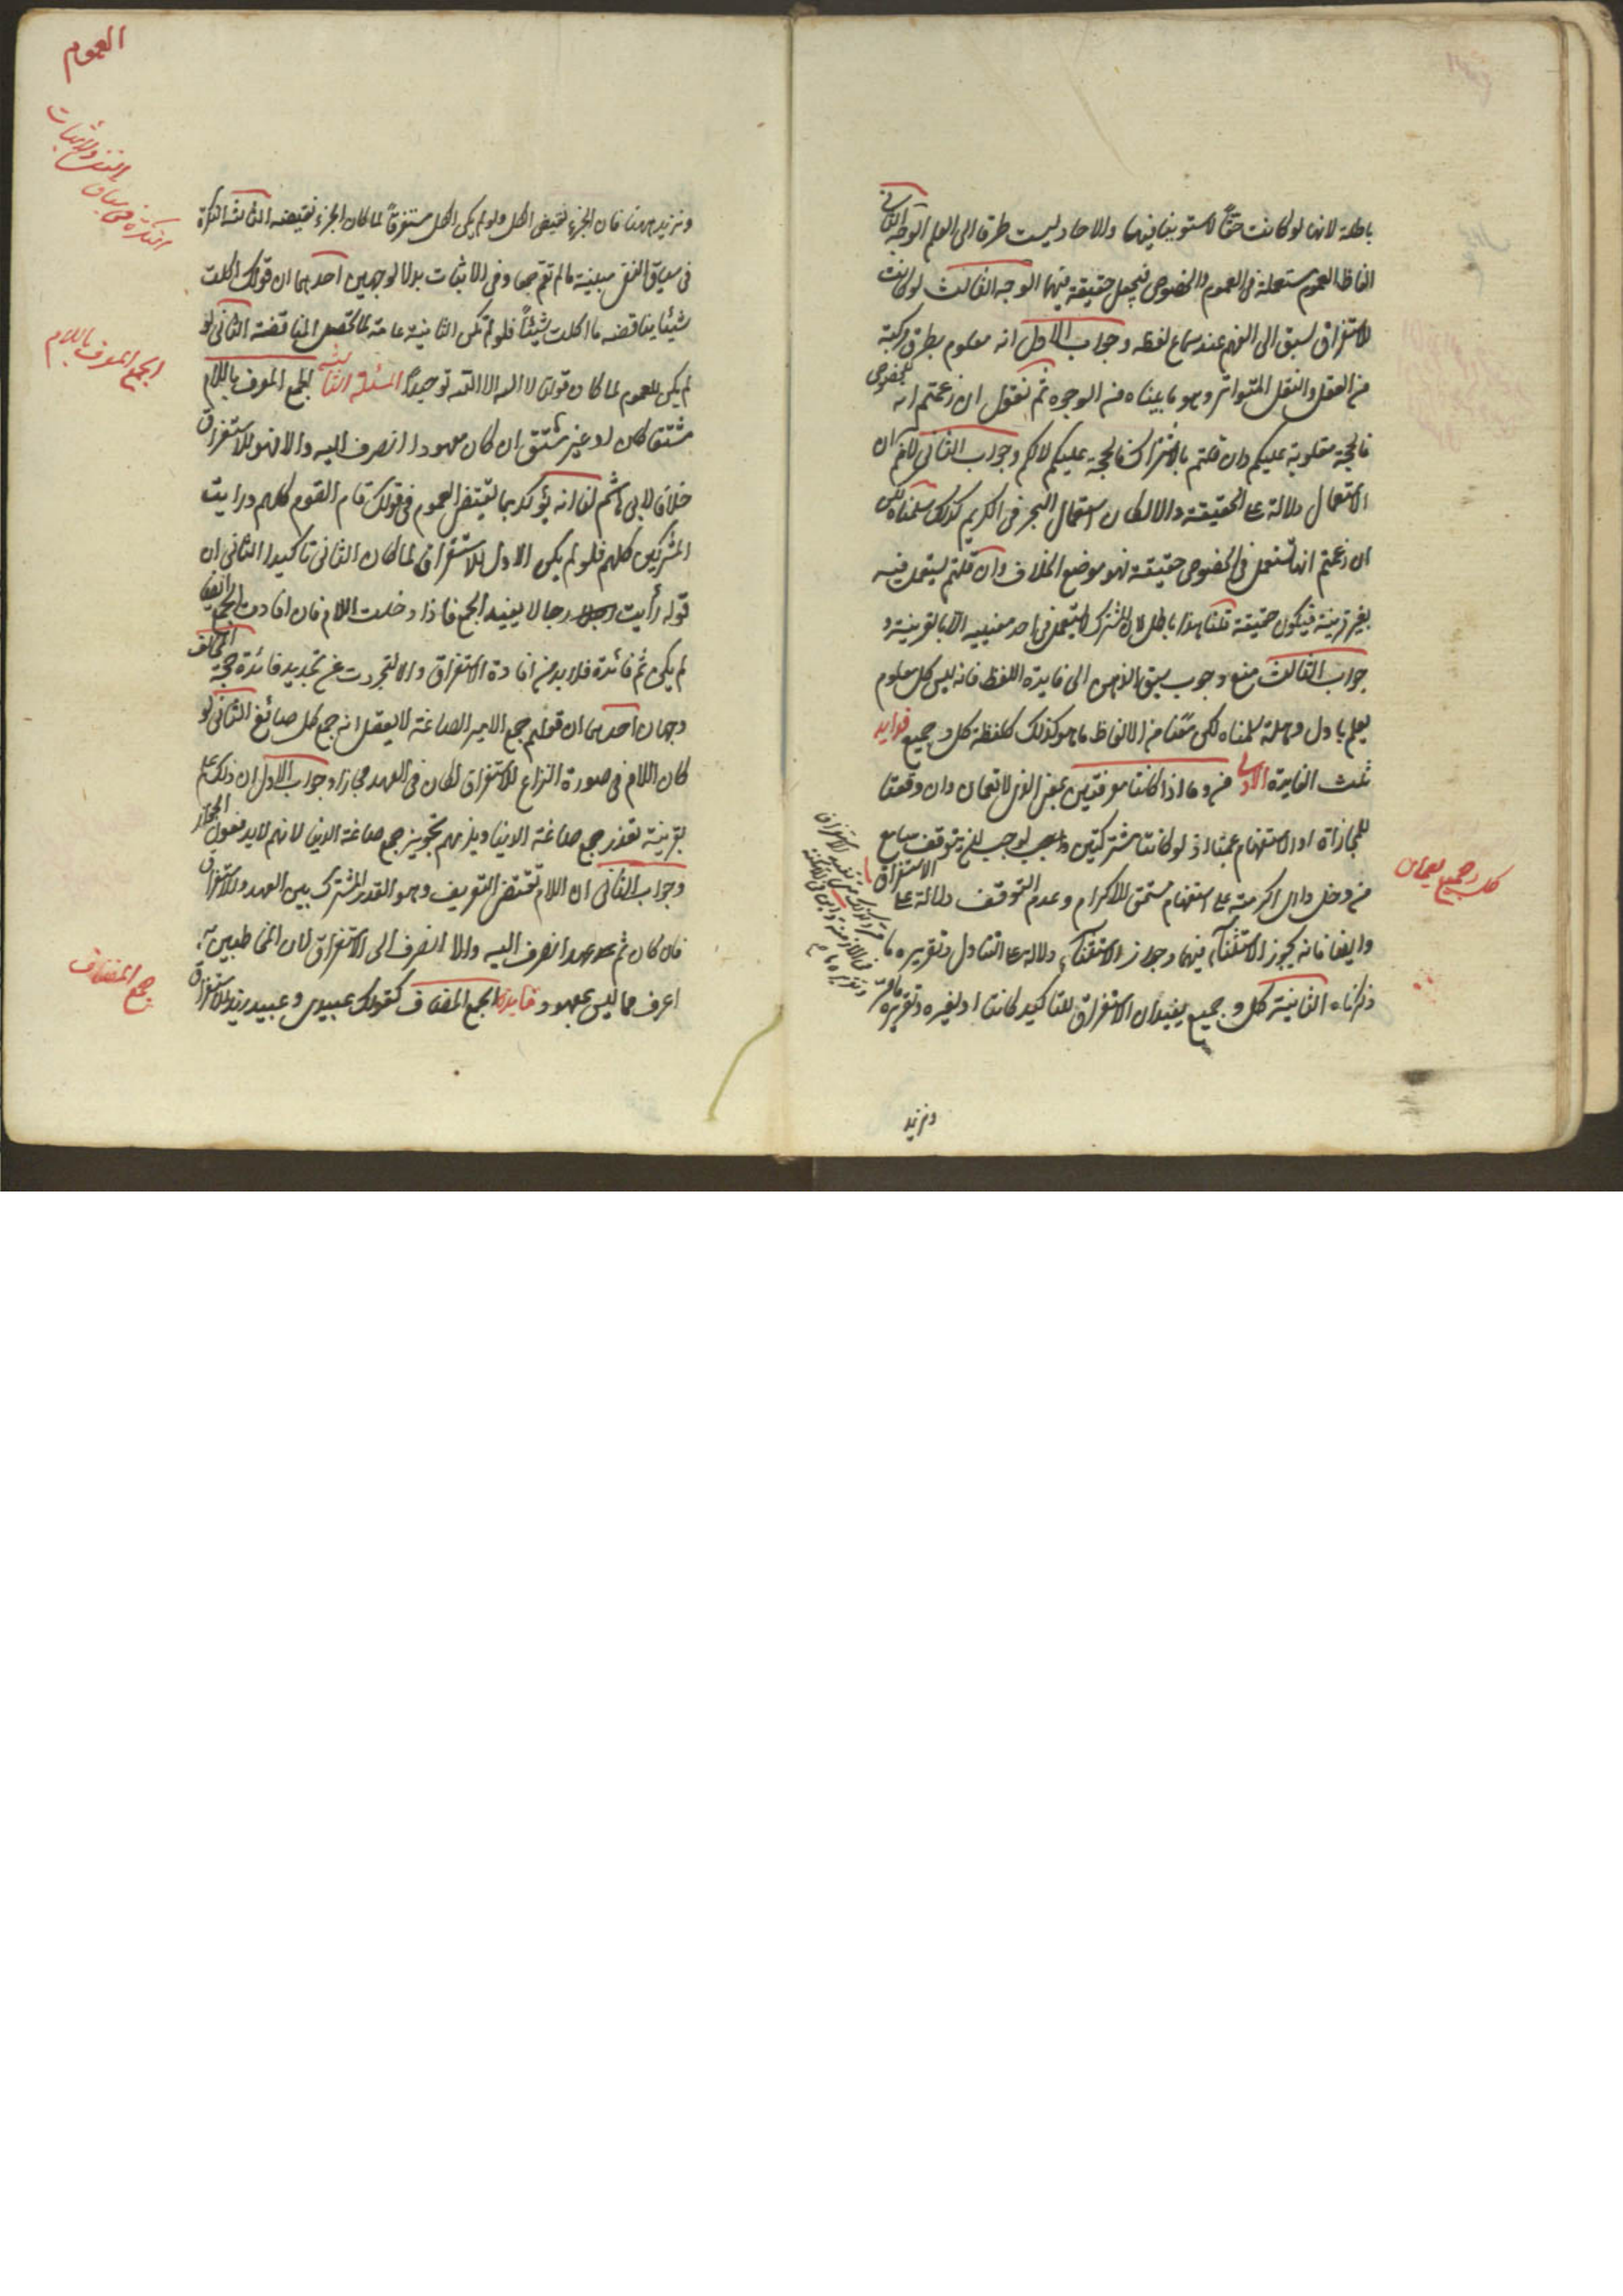 باطلة لانها لو كانت حقا لاستوينا فيها والاحاد ليست طرقا الى العلم الوجه الثانى
الفاظ العموم مستعملة فى العموم والخصوص فيجعل حقيقة فيهما الوجه الثالث لو كانت
للاستغراق لسبق الى الفهم عند سماع لفظه وجواب الاول انه معلوم بطرق مركبة
من العقل والنقل المتواتر وهو ما بيناه من الوجوه ثم نقول ان زعمتم انه للخصوص
فالحجة مقلوبة عليكم وان قلتم بالاشتراك فالحجة عليكم لا لكم وجواب الثانى لانم ان
الاستعمال دلالة على الحقيقة والا لكان استعمال البحر فى الكريم كذلك سلمناه لكن
ان زعمتم انها تستعمل فى الخصوص حقيقة فهو موضع الخلاف وان قلتم يستعمل فيه
بغير قرينة فيكون حقيقة قلنا هذا باطل لان المشترك لا يستعمل فى احد معنييه الا بالقرينة و
جواب الثالث منع وجوب سبق الذهن الى فايدة اللفظ فانه ليس كل معلوم
يعلم باول وهلة سلمناه لكن معنا من الالفاظ ما هو كذلك كلفظة كل وجميع فوايد
ثلث الفايدة الاولى من وما اذا كانتا معرفتين بمعنى الذى لا تعمان وان وقعتا
للمجازاة او الاستفهام عمتا اذ لو كانتا مشتركتين لوجب ان يتوقف سامع
من دخل دارى اكرمته على استفهام مستحق الاكرام وعدم التوقف دلالة على الاستغراق
وايضا فانه يجوز الاستثناء فيهما وجواز الاستثناء دلالة على التناول وتقريره ما
ذكرناه الثانية كل وجميع يفيدان الاستغراق للتاكيد كانتا او لغيره وتقريره ما مر
كل وجميع يعمان
ونزيد
العموم
النكرة فى سياق
النفى والاثبات
ونزيد هيهنا فان الجزء نقيض الكل ولو لم يكن الكل مستغرقاً لما كان الجزء نقيضه الثالثة النكرة
فى سياق النفى مبينة ما لم تقم جميعا وفى الاثبات بدلا لوجهين احدهما ان قولك اكلت
شيئا يناقضه ما اكلت شيئاً فلو لم تكن الثانية عامة لما تحقق المناقضة الثانى لو
لم يكن للعموم لما كان قولنا لا اله الا الله توحيداً المسئلة الثالثة الجمع المعرف باللام
مشتقا كان او غير مشتق ان كان معهودا انصرف اليه والا فهو للاستغراق
خلافا لابى هاشم لنا انه يؤكد بما يقتضى العموم فى قولك قام القوم كلهم ورايت
المشركين كلهم فلو لم يكن الاول للاستغراق لما كان الثانى تاكيدا الثانى ان
قوله رأيت رجالا يفيد الجمع فاذا دخلت اللام فان افادت الجمع ايضا
لم يكن ثم فائدة فلا بد من افادة الاستغراق والا لتجردت عن تجديد فائدة حجة المخالف
وجهان احدهما ان قولهم جمع الامير الصاغة لا يعقل انه جمع كل صائغ الثانى لو
كان اللام فى صورة النزاع للاستغراق لكان فى العهد مجازا وجواب الاول ان ذلك علم
بقرينة تعذر جمع صاغة الدنيا ويلزمهم تجويز جمع صاغة الدنيا لانهم لابد يقولون
وجواب الثانى ان اللام تقتضى التعريف وهو القدر المشترك بين العهد والاستغراق
فان كان ثم عهد انصرف اليه والا انصرف الى الاستغراق لان المخاطبين به
اعرف مما ليس بمعهود فايدة الجمع المضاف كقولك عبيدى وعبيد زيد للاستغراق
الجمع المعرف باللام
جمع المضاف